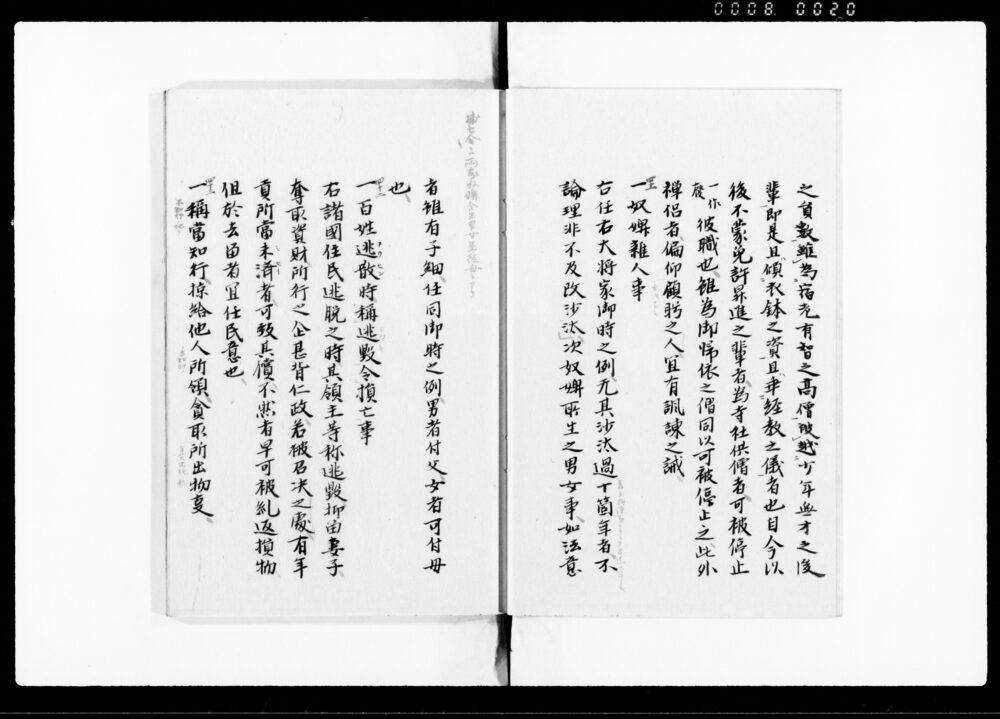 0008 0020
之員数雖為宿老有智之高僧被越少年無才之後
輩即是且傾衣鉢之資且乖経教之儀者也自今以
後不蒙免許昇進之輩者為寺社供僧者可被停止
一作
彼職也雖為御帰依之僧同以可被停止之此外
禅侶者偏仰顧眄之人宜有諷諫之誡
一奴婢雑人事
右任右大将家御時之例无其沙汰過十箇年者不
論理非不及改沙汰次奴婢所生之男女事如法意
者雖有子細任同御時之例男者付父女者可付母
也
一百姓逃散時称逃毀令損亡事
右諸國住民逃脱之時其領主等称逃毀抑留妻子
奪取資財所行之企甚背仁政若被召决之處有年
貢所當未済者可致其償不然者早可被糺返損物
但於去留者宜任民意也
一稱當知行掠給他人所領貪取所出物事